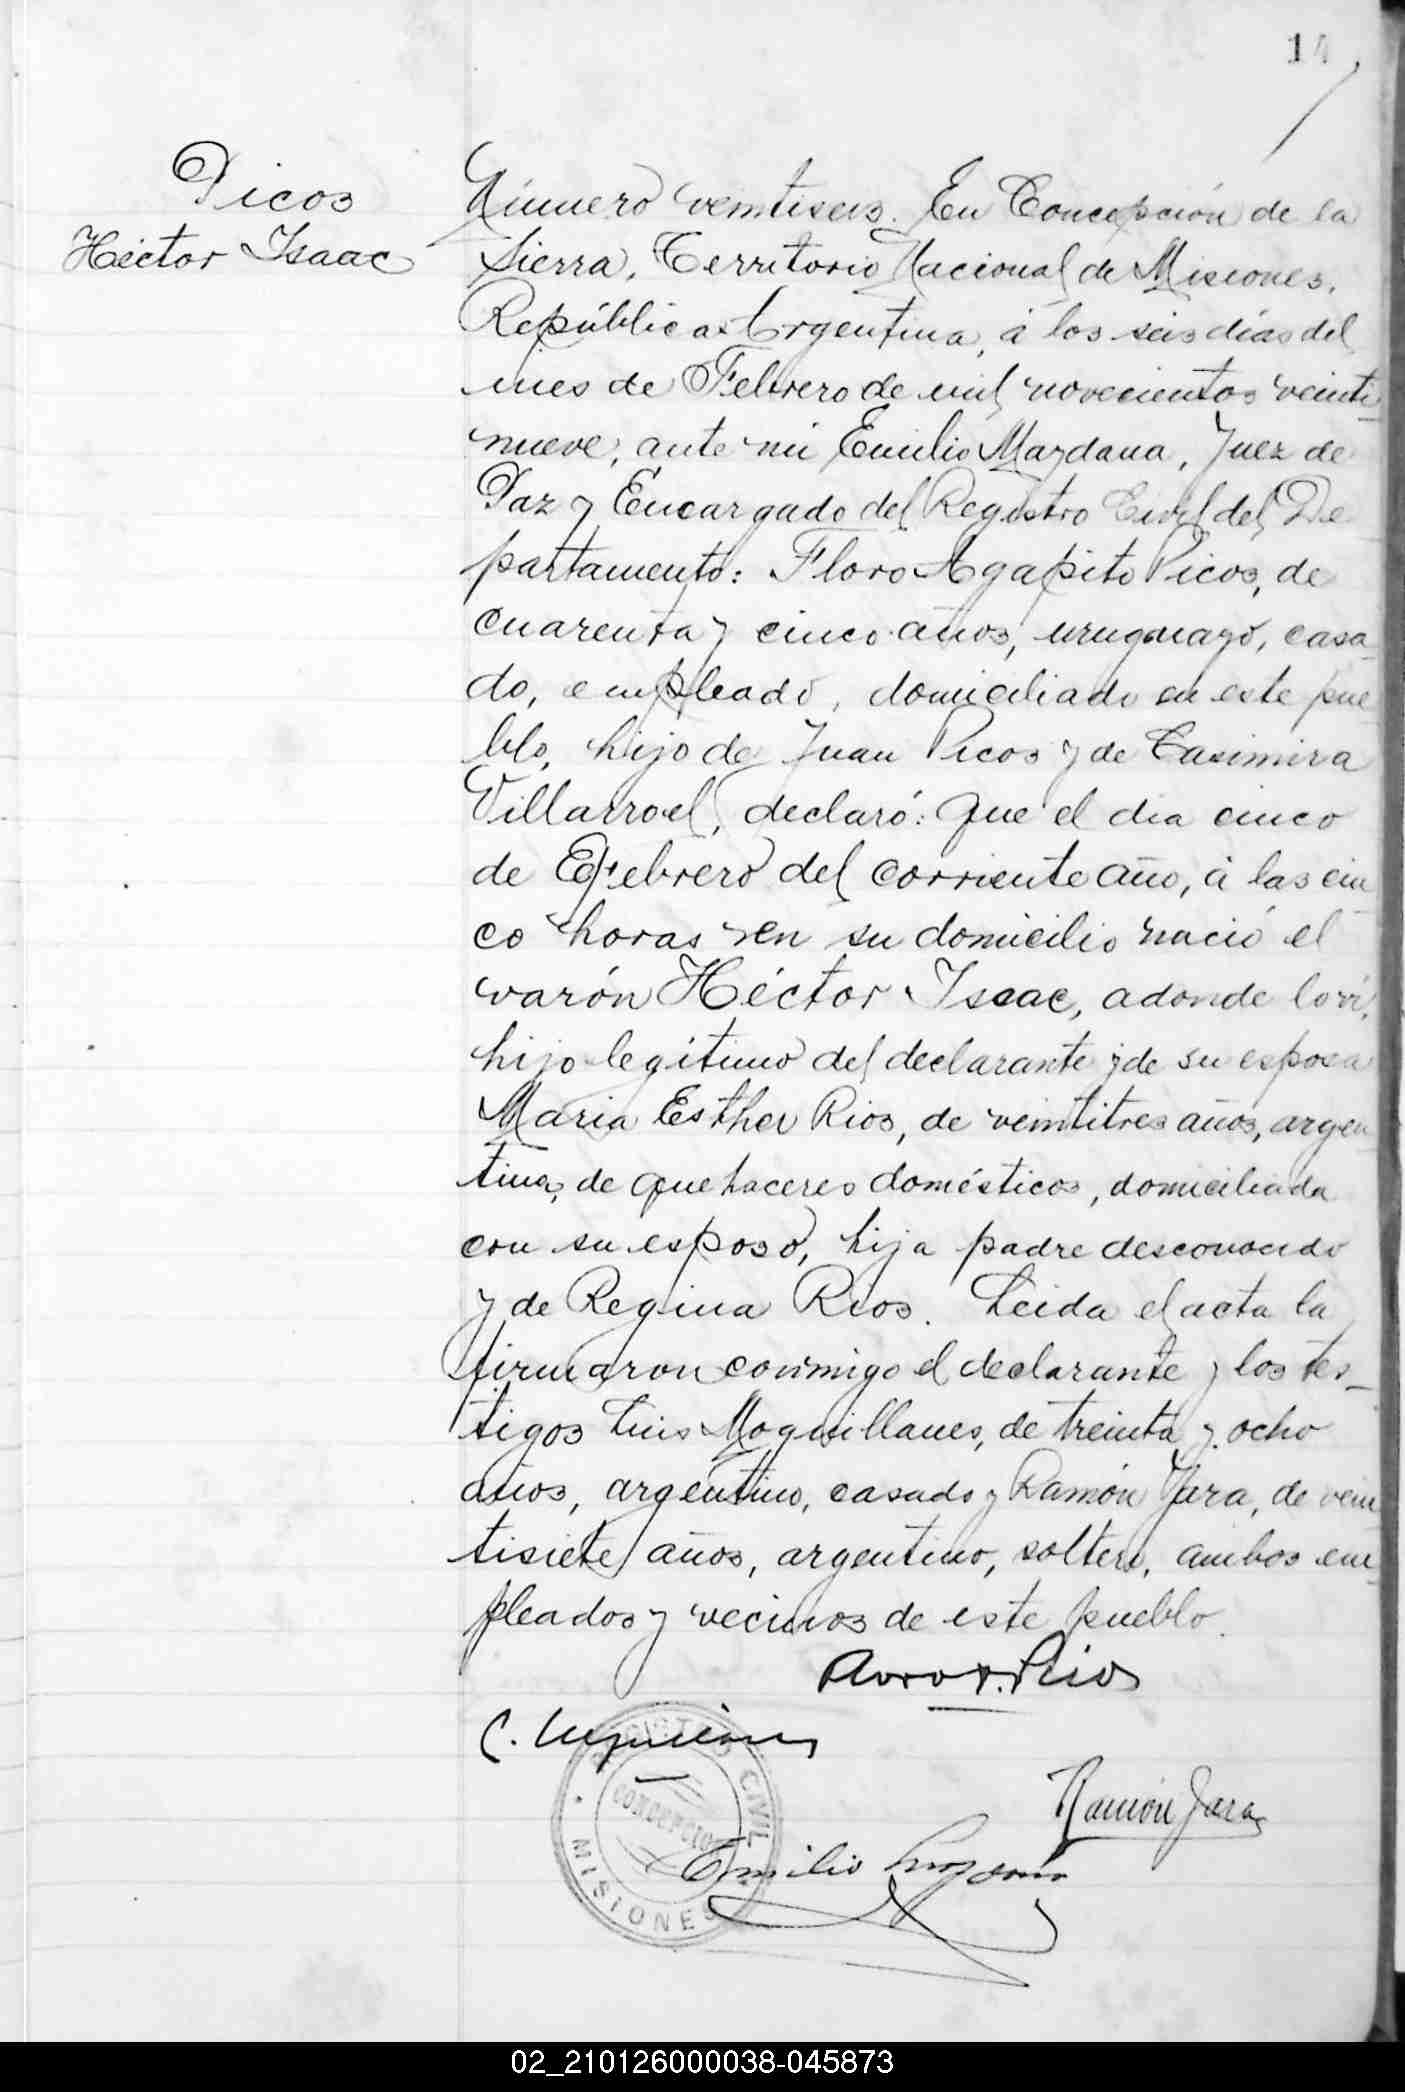 14
Picos
Héctor Isaac
Número veintiseis. En Concepción de la
Sierra, Territorio Nacional de Misiones,
República Argentina, á los seis días del
mes de Febrero de mil novecientos veinti
nueve, ante mi Emilio Maydana, Juez de
Paz y Encargado del Registro Civil del De
partamento: Floro Agapito Picos, de
cuarenta y cinco años, uruguayo, casa
do, empleado, domiciliado en este pue
blo, hijo de Juan Picos y de Casimira
Villarroel, declaró: Que el día cinco
de Febrero del corriente año, á las cin
co horas en su domicilio nació el
varón Héctor Isaac, adonde lo vi,
hijo legítimo del declarante y de su esposa
Maria Esther Rios, de veintitres años, argen
tina, de quehaceres domésticos, domiciliada
con su esposo, hija padre desconocido
y de Regina Rios. Leida el acta la
firmaron conmigo el declarante y los tes-
tigos Luis Moguillanes, de treinta y ocho
años, argentino, casado y Ramón Jara, de vein
tisiete años, argentino, soltero, ambos em
pleados y vecinos de este pueblo.
REGISTRO CIVIL
CONCEPCION
MISIONES
Ramón Jara
Emilio Maydana
02_210126000038-045873